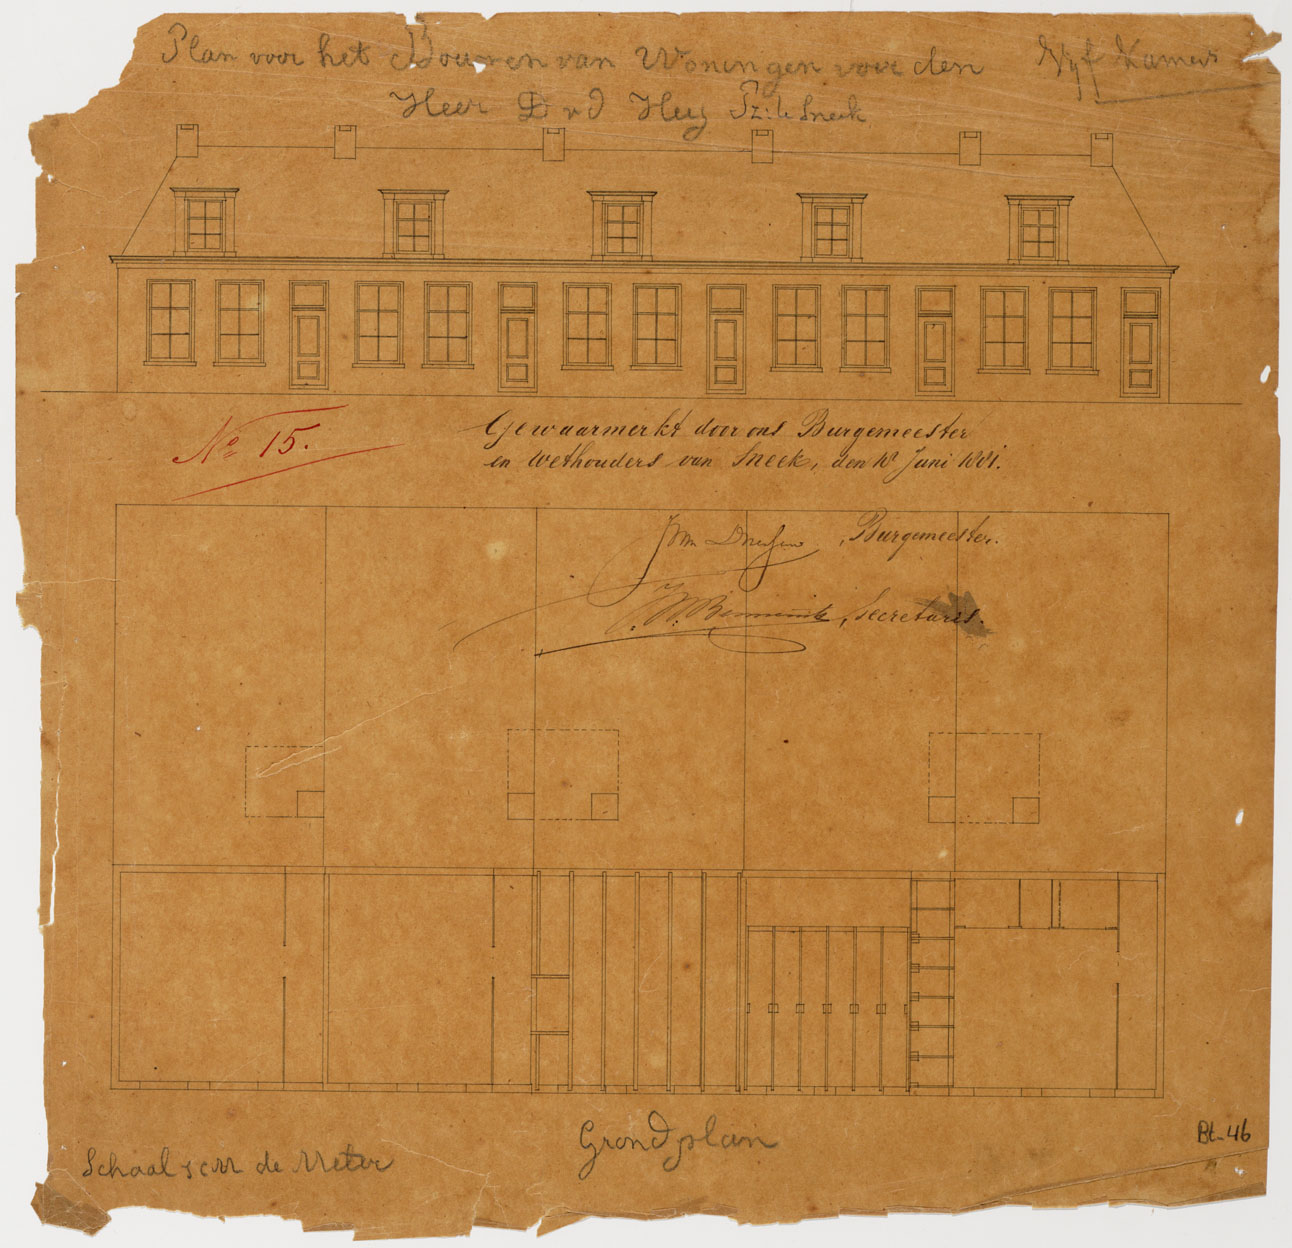 Plan voor het Bouwen van Woningen voor den
Heer D v d Heij Pz: te Sneek
Vijf Kamers
No 15.
Gewaarmerkt door ons Burgemeester
en Wethouders van Sneek, den Juni 1881.
, Burgemeester.
, Secretaris.
Grondplan
Schaal 1 cM de Meter
Bt-46